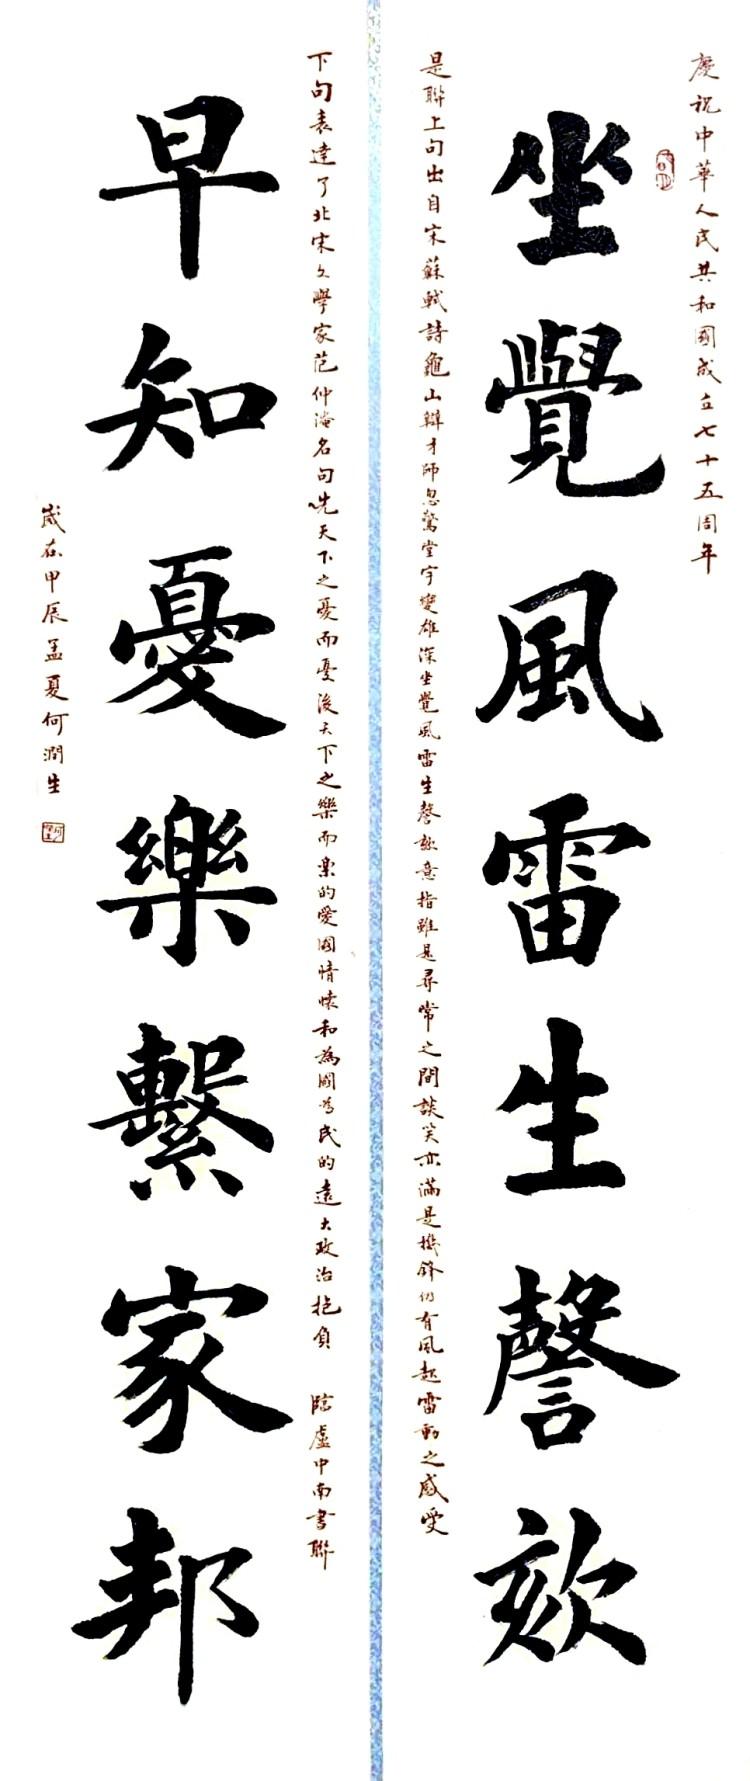 慶祝中華人民共和國成立七十五周年
坐覺風雷生謦欬
是聯上句出自宋蘇軾詩龜山辯才師忽驚堂宇變雄深坐覺風雷生謦欬意指雖是尋常之間談笑亦滿是機鋒仍有風起雷動之感受
下句表達了北宋文學家范仲淹名句先天下之憂而憂後天下之樂而樂的愛國情懷和為國為民的遠大政治抱負 臨盧中南書聯
早知憂樂繫家邦
歲在甲辰孟夏何潤生